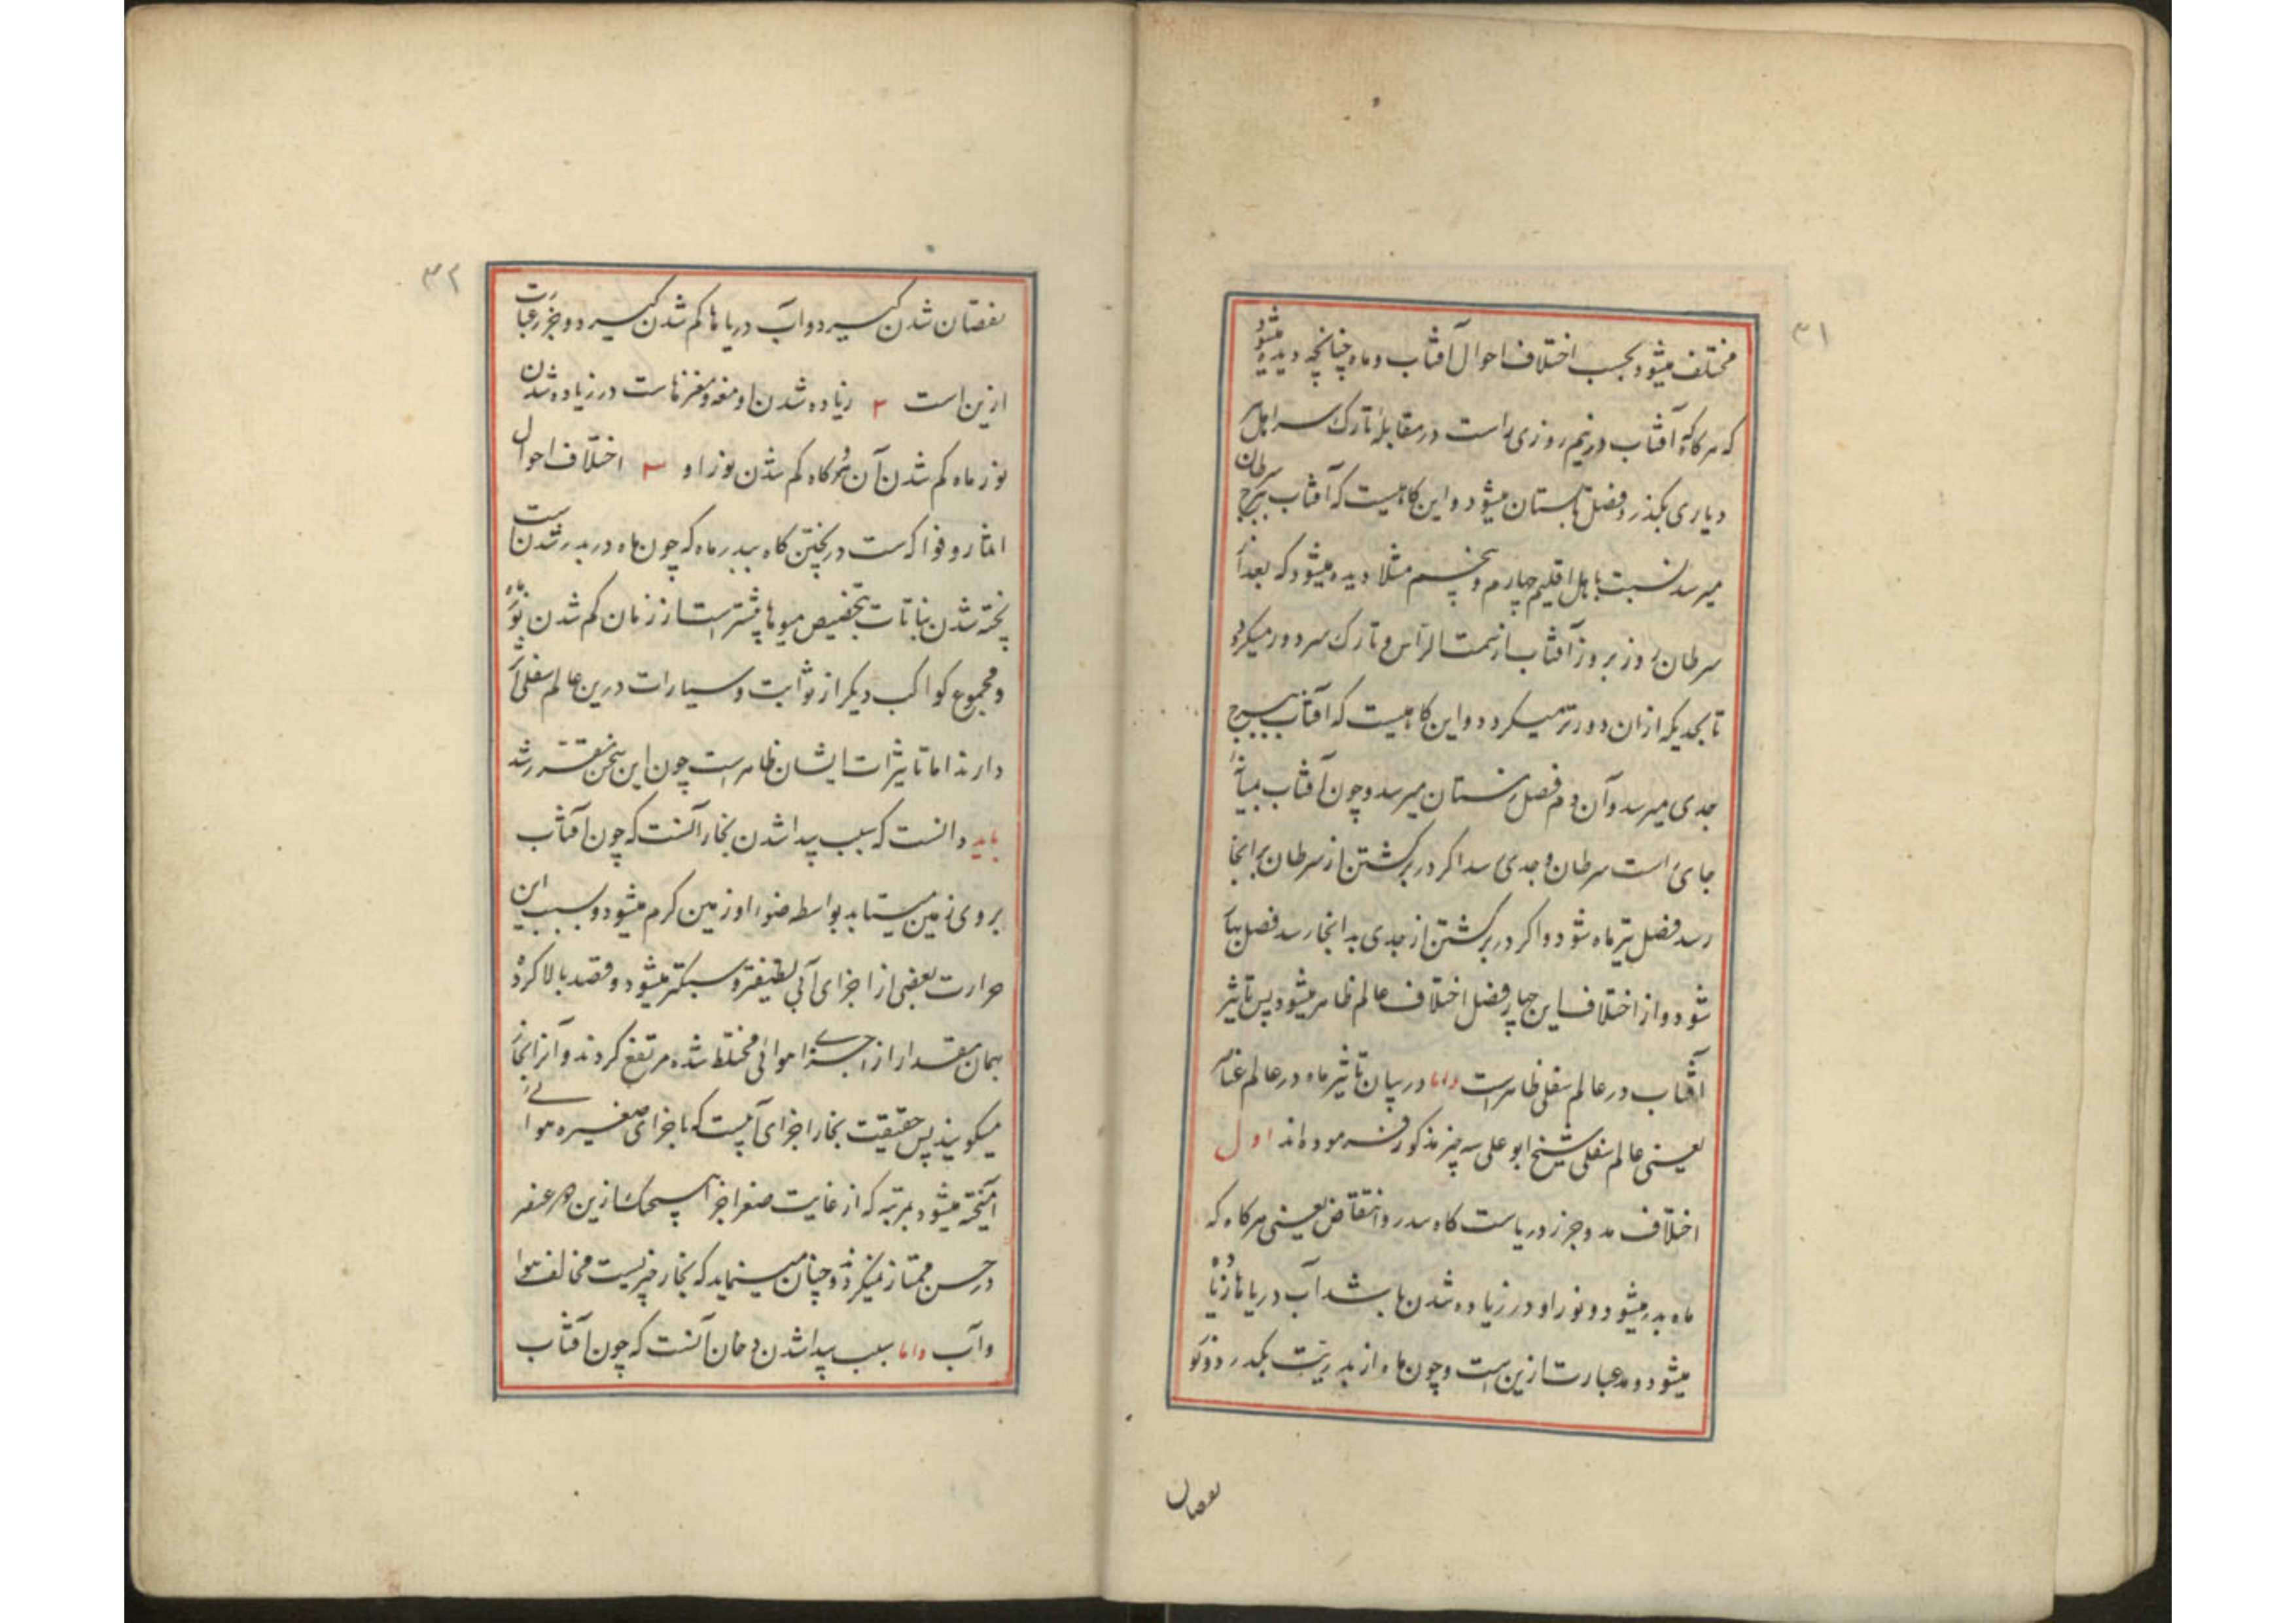 ۳۱
مختلف میشود بحسب اختلاف احوال آفتاب و ماه چنانچه دیده میشود
که هرگاه آفتاب در نیم روزی راست در مقابلهٔ تارک سر اهل
دیاری بگذرد فصل تابستان میشود و این گاهیست که آفتاب ببرج سرطان
میرسد نسبت باهل اقلیم چهارم و پنجم مثلا دیده میشود که بعد از
سرطان روز بروز آفتاب از سمت الراس و تارک سر دور میگردد
تا بحدیکه از ان دورتر نمیگردد و این گاهیست که آفتاب ببرج
جدی میرسد و آن دم فصل زمستان میرسد و چون آفتاب بمیانه
جای است سرطان و جدی رسد اگر در برگشتن از سرطان بر انجا
رسد فصل تیر ماه شود و اگر در برگشتن از جدی بدانجا رسد فصل بهار
شود و از اختلاف این چهار فصل اختلاف عالم ظاهر میشود پس تاثیر
آفتاب در عالم سفلی ظاهر است و اما در بیان تاثیر ماه در عالم عناصر
یعنی عالم سفلی شیخ ابو علی سه چیز مذکور فرموده اند اول
اختلاف مد و جزر دریاست گاه بدر و انتقاض یعنی هرگاه که
ماه بدر میشود و نور او در زیاده شدن باشد آب دریاها زیاده
میشود و مد عبارت ازین است و چون ماه از بدریت بگذرد و نور
نقصان
۳۲
نقصان شدن گیرد و آب دریاها کم شدن گیرد و جزر عبارت
ازین است ۲ زیاده شدن ادمغه و مغزهاست در زیاده شدن
نور ماه کم شدن آن هرگاه کم شدن نور او ۳ اختلاف احوال
اثمار و فواکه ست در پختن گاه بدر ماه که چون ماه در بدر شدن است
پخته شدن نباتات بتخصیص میوها بیشتر است از زمان کم شدن نور ماه
و مجموع کواکب دیگر از ثوابت و سیارات درین عالم سفلی اثر
دارند اما تاثیرات ایشان ظاهر است چون این سخن مقرر شد
باید دانست که سبب پیدا شدن بخار آنست که چون آفتاب
بروی زمین میتابد بواسطه ضوء او زمین گرم میشود و بسبب این
حرارت بعضی از اجزای آبی لطیفتر و سبکتر میشود و قصد بالا کرده
بهمان مقدار از اجزای هوائی مختلط شده مرتفع گردند و آنرا بخار
میگویند پس حقیقت بخار اجزای آبیست که با جزای صغیره هوائی
آمیخته میشود بمرتبه که از غایت صغر اجزا هیچیک ازین دو عنصر
در حس ممتاز نمیگردد و چنان مینماید که بخار چیزیست مخالف هوا
و آب و اما سبب پیدا شدن دخان آنست که چون آفتاب